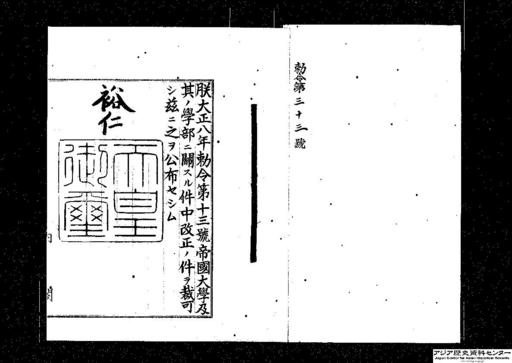 勅令第三十三號
朕大正八年勅令第十三號帝國大學及
其ノ學部ニ關スル件中改正ノ件ヲ裁可
シ茲ニ之ヲ公布セシム
裕仁
天皇
御璽
内閣
アジア歴史資料センター
Japan Center for Asian Historical Records